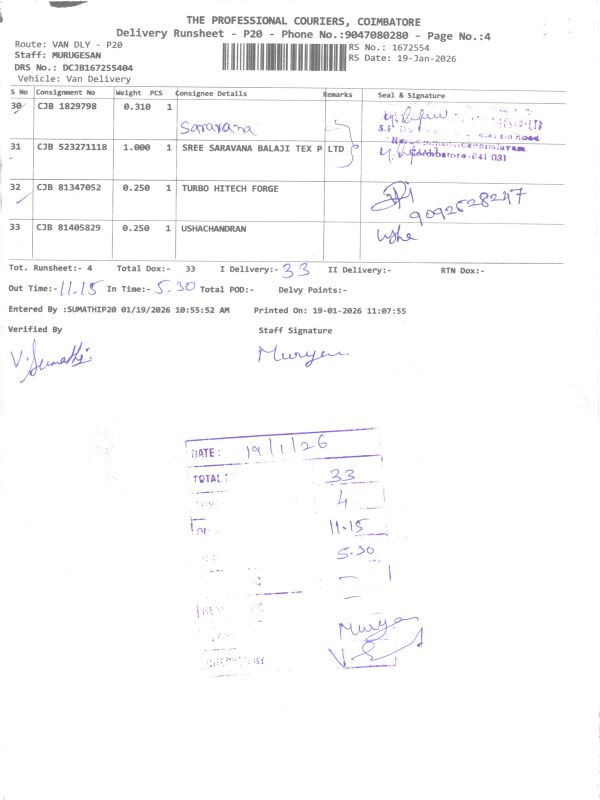 THE PROFESSIONAL COURIERS, COIMBATORE
Delivery Runsheet - P20 - Phone No.:9047080280 - Page No.:4
Route: VAN DLY - P20
Staff: MURUGESAN
DRS No.: DCJB167255404
Vehicle: Van Delivery
RS No.: 1672554
RS Date: 19-Jan-2026
S No Consignment No Weight PCS Consignee Details Remarks Seal & Signature
30 CJB 1829798 0.310 1 Saravana
31 CJB 523271118 1.000 1 SREE SARAVANA BALAJI TEX P LTD
Coimbatore-641 031
32 CJB 81347052 0.250 1 TURBO HITECH FORGE
9092628247
33 CJB 81405829 0.250 1 USHACHANDRAN Usha
Tot. Runsheet:- 4 Total Dox:- 33 I Delivery:- 33 II Delivery:- RTN Dox:-
Out Time:- 11.15 In Time:- 5.30 Total POD:- Delvy Points:-
Entered By :SUMATHIP20 01/19/2026 10:55:52 AM Printed On: 19-01-2026 11:07:55
Verified By Staff Signature
V. Sumathi Murugan
DATE: 19/1/26
TOTAL: 33
4
11.15
5.30
Murugan